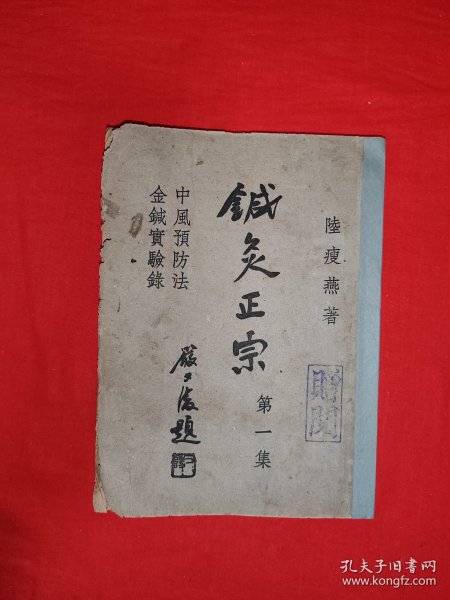 陸瘦燕著
鍼灸正宗
第一集
中風預防法
金鍼實驗錄
題
贈閱
孔夫子旧书网
www.kongfz.com